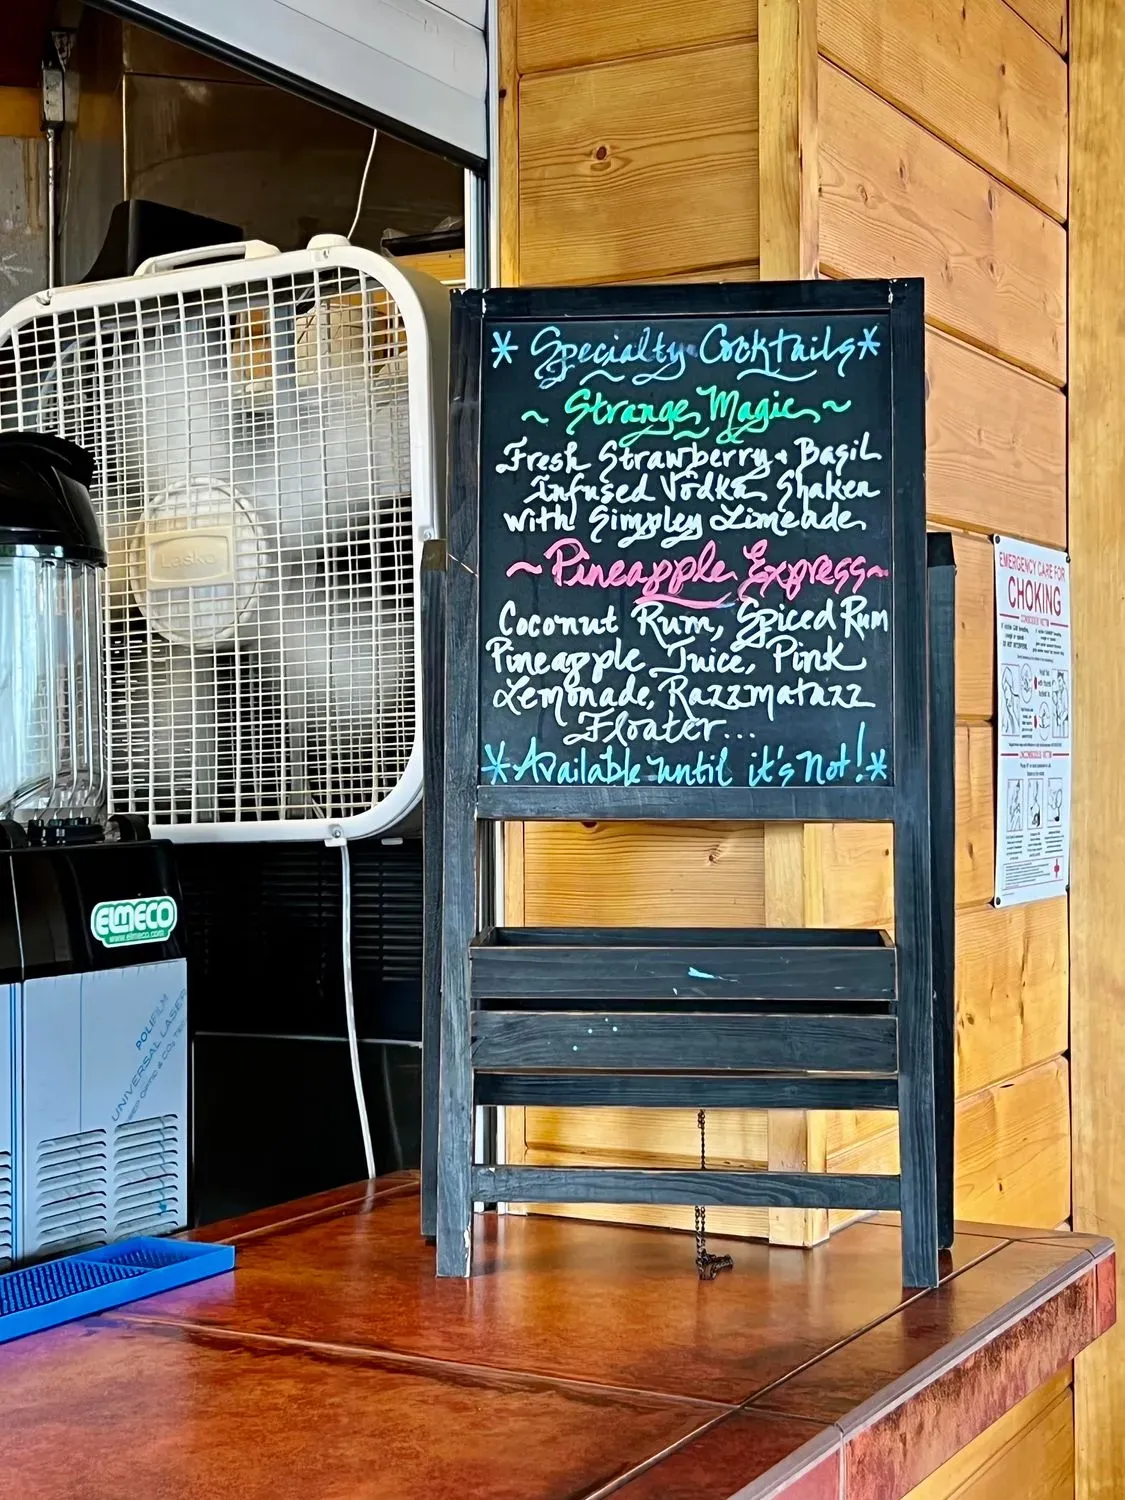 * Specialty Cocktails *
~ Strange Magic ~
Fresh Strawberry & Basil
Infused Vodka Shaken
with Simpley Limeade
~ Pineapple Express ~
Coconut Rum, Spiced Rum
Pineapple Juice, Pink
Lemonade, Razzmatazz
Floater...
* Available until it's Not! *
Lasko
ELMECO
www.elmeco.com
POLIFILM
UNIVERSAL LASER
EMERGENCY CARE FOR
CHOKING
CONSCIOUS VICTIM
UNCONSCIOUS VICTIM